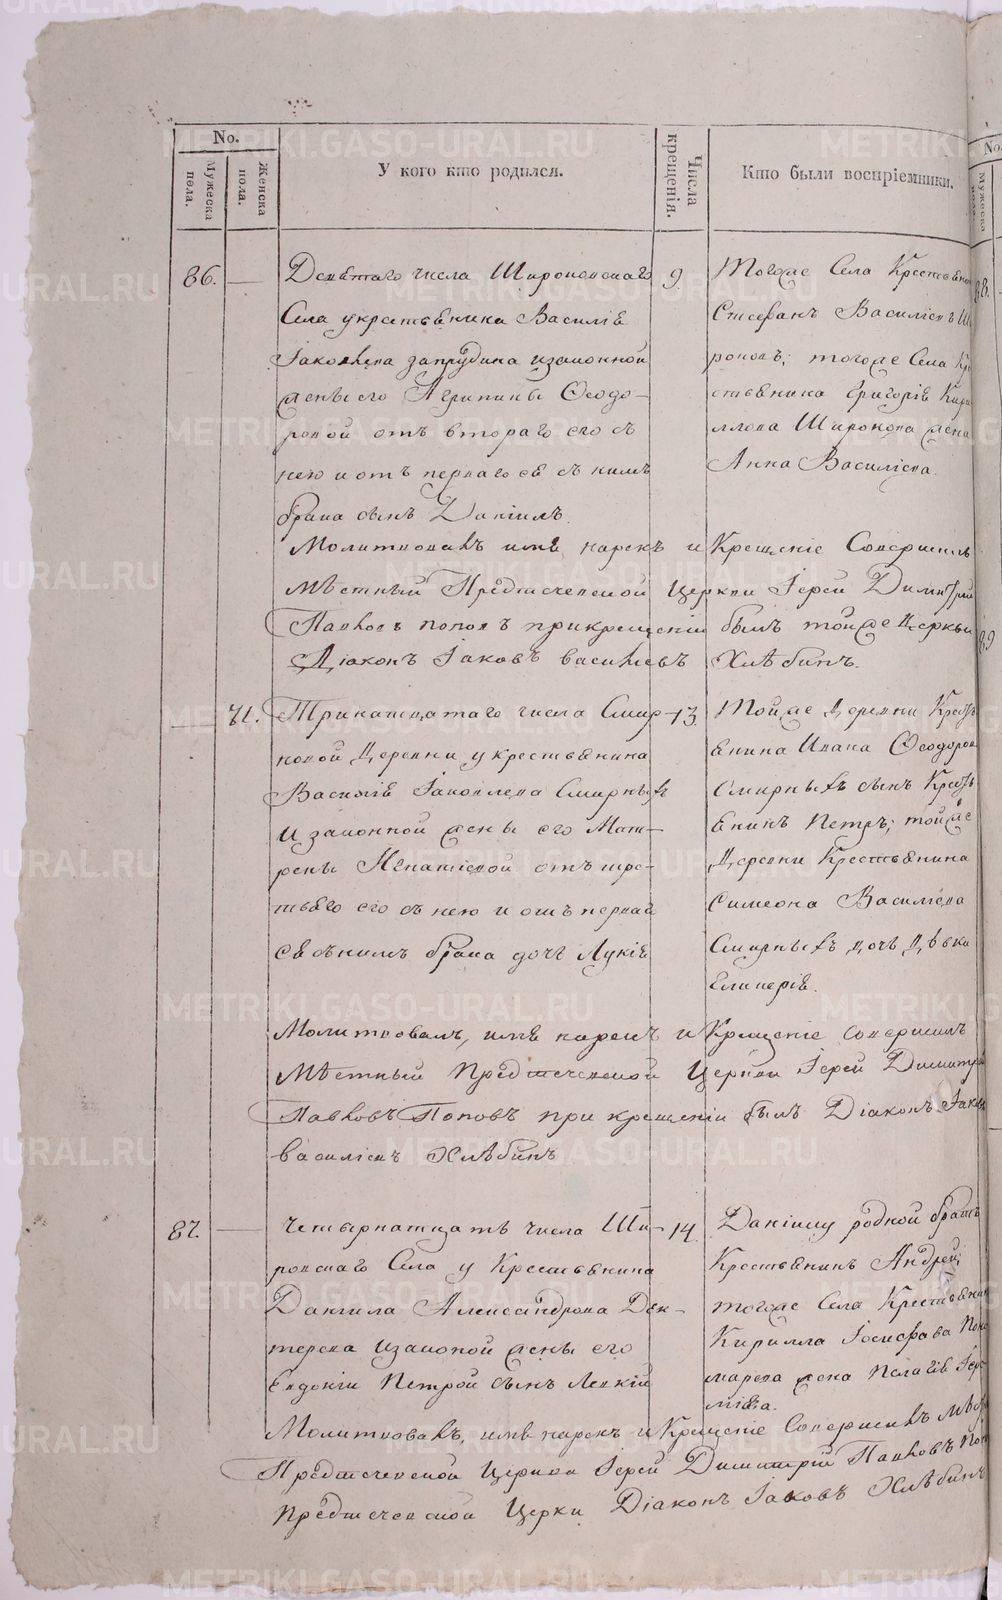 No.
Мужеска пола.
Женска пола.
У кого кто родился.
Числа крещенія.
Кто были воспріемники.
86.
Девятаго числа Широковскаго
Села у крестьянина Василія
Іаковлева Запрудина и законной
жены его Агрипины Ѳеодо-
ровой отъ втораго его съ
нею и отъ перваго ея съ нимъ
брака сынъ Даніилъ.
9.
Тогоже Села Крестьянинъ
Стефанъ Василіевъ Ши
роковъ; тогоже Села Кре
стьянина Григорія Кири
ллова Широкова жена
Анна Василіева.
Молитвовалъ имя нарекъ и Крещеніе Совершилъ
Мѣстный Предтеченской Церкви Іерей Димитрій
Павловъ Поповъ при крещеніи былъ тойже Церкви
Діаконъ Іаковъ Васильевъ Хлѣбинъ.
71.
Тринатцатаго числа Смир-
новой Деревни у крестьянина
Василія Іаковлева Смирныхъ
и законной жены его Мат-
рены Игнатіевой отъ тре-
тьяго его съ нею и отъ перваго
ея съ нимъ брака дочь Лукія
13.
Тойже Деревни Кресть
янина Ивана Ѳеодорова
Смирныхъ сынъ Кресть
янинъ Петръ; тойже
Деревни Крестьянина
Симеона Василіева
Смирныхъ дочь дѣвка
Гликерія.
Молитвовалъ, имя нарекъ и Крещеніе совершилъ
Мѣстный Предтеченской Церкви Іерей Димитрій
Павловъ Поповъ при крещеніи былъ Діаконъ Іаковъ
Василіевъ Хлѣбинъ
87.
Четырнатцать числа Ши-
ровскаго Села у Крестьянина
Данила Александрова Дек-
терева и законой жены его
Евдокіи Петрой сынъ
14.
Даніилу родной братъ
Крестьянинъ Андрей;
тогоже Села Крестьянина
Кирилла Іосифова Поно
марева жена Пелагія Іере
міева.
Молитвовалъ, имя нарекъ и Крещеніе Совершилъ Мѣс
Предтеченской Церкви Іерей Димитрій Павловъ Поп
Предтеченской Церкви Діаконъ Іаковъ Хлѣбинъ
No.
Мужеска пола.
88.
89
METRIKI.GASO-URAL.RU